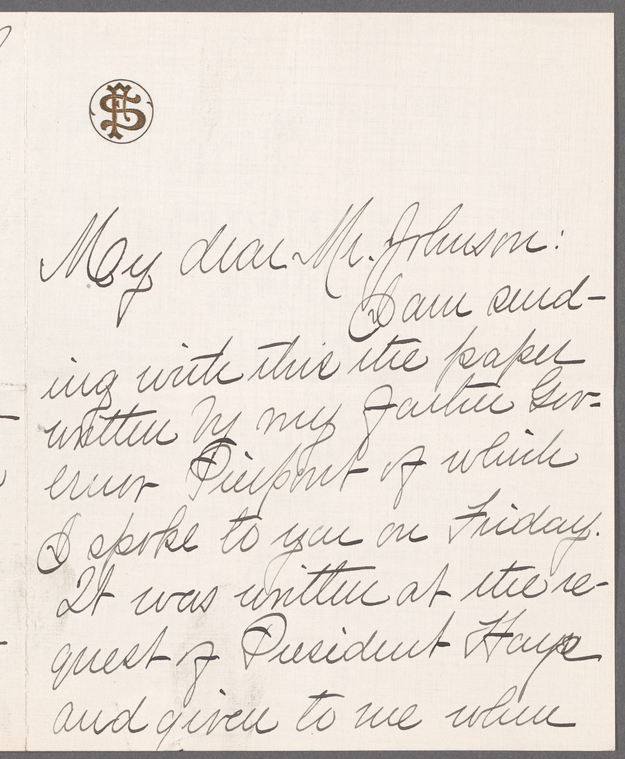 My dear Mr. Johnson:
I am send-
ing with this the paper
written by my father Gov-
ernor Pierpont of which
I spoke to you on Friday.
It was written at the re-
quest of President Hays
and given to me when